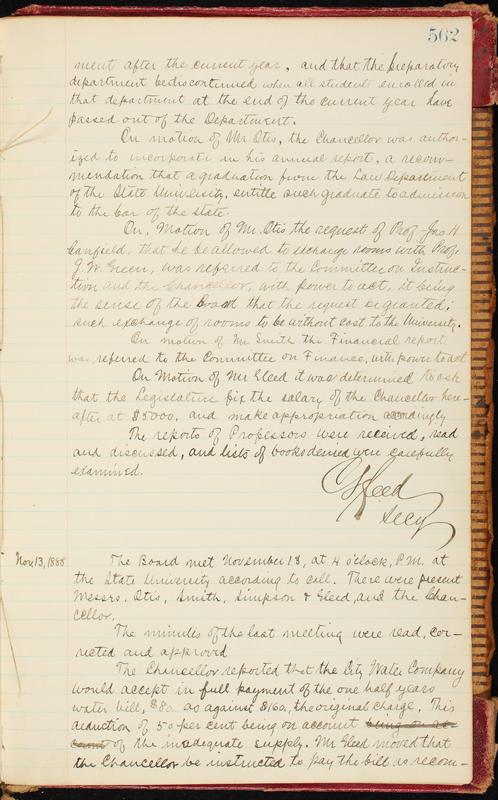 562
ment after the current year, and that the preparatory
department be discontinued when all students enrolled in
that department at the end of the current year have
passed out of the Department.
On motion of Mr Otis, the Chancellor was author-
ized to incorporate in his annual report, a recom-
mendation that a graduation from the Law Department
of the State University, entitle such graduate to admission
to the bar of the state.
On, Motion of Mr. Otis the request of Prof. Jas H
Canfield, that he be allowed to exchange rooms with Prof.
J. W. Green, was referred to the Committee on Instruc-
tion and the Chancellor, with power to act, it being
the sense of the Board that the request be granted;
such exchange of rooms to be without cost to the University.
On motion of Mr Smith the Financial report
was referred to the Committee on Finance, with power to act
On Motion of Mr Gleed it was determined to ask
that the Legislature fix the salary of the Chancellor here-
after at $5000, and make appropriation accordingly
The reports of Professors were received, read
and discussed, and lists of books desired were carefully
examined.
C S Gleed
Secy
Nov, 13, 1888
The Board met November 13, at 4 o'clock, P.M. at
the State University according to call. There were present
Messrs. Otis, Smith, Simpson & Gleed, and the Chan-
cellor.
The minutes of the last meeting were read, cor-
rected and approved
The Chancellor reported that the City Water Company
would accept in full payment of the one half years
water bill, $80. as against $160, the original charge. This
deduction of 50 per cent being on account being on ac-
count of the inadequate supply. Mr Gleed moved that
the Chancellor be instructed to pay the bill as recom-